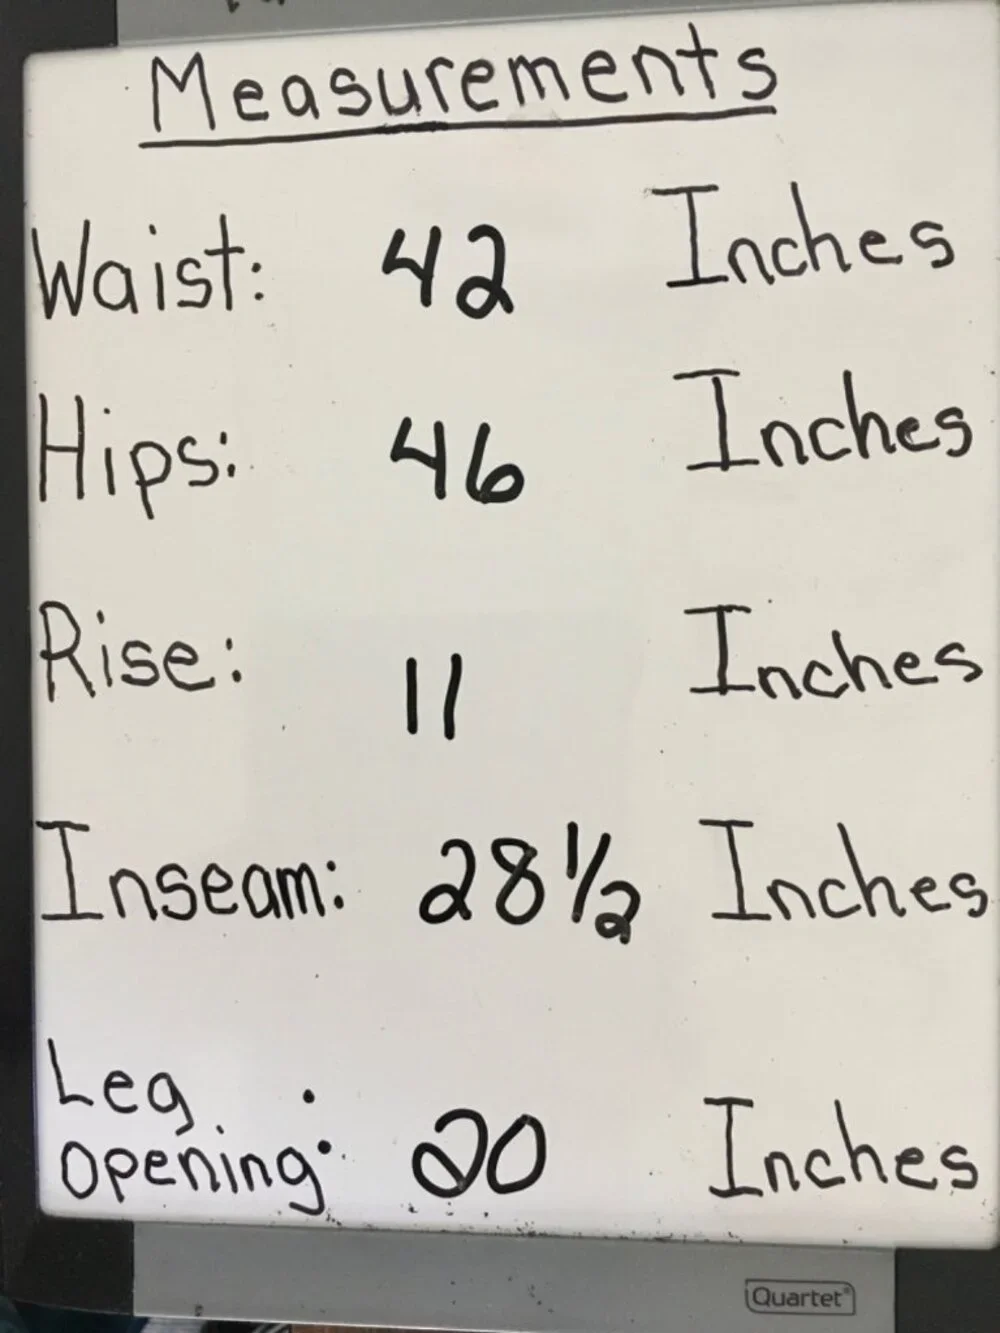 Measurements
Waist: 42 Inches
Hips: 46 Inches
Rise: 11 Inches
Inseam: 28 1/2 Inches
Leg
Opening: 20 Inches
Quartet®